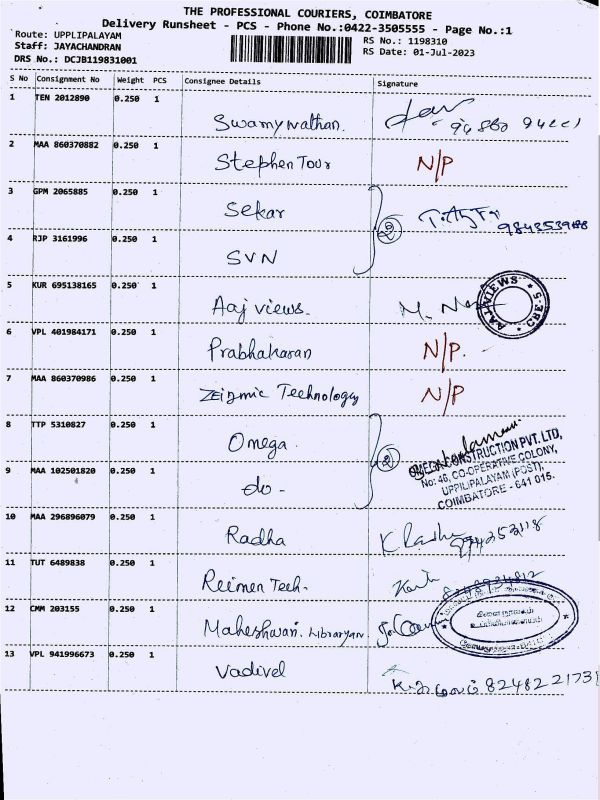 THE PROFESSIONAL COURIERS, COIMBATORE
Delivery Runsheet - PCS - Phone No.:0422-3505555 - Page No.:1
Route: UPPLIPALAYAM
Staff: JAYACHANDRAN
DRS No.: DCJB119831001
RS No.: 1198310
RS Date: 01-Jul-2023
S No Consignment No Weight PCS Consignee Details Signature
1 TEN 2012890 0.250 1 Swamynathan.
2 MAA 860370882 0.250 1 Stephen Tour N/P
3 GPM 2065885 0.250 1 Sekar
②
4 RJP 3161996 0.250 1 SVN
5 KUR 695138165 0.250 1 Aaj views.
AAJ VIEWS CBE-5
6 VPL 401984171 0.250 1 Prabhakaran N/P.
7 MAA 860370986 0.250 1 Zeizmic Technology N/P
8 TTP 5310827 0.250 1 Omega.
②
OMEGA CONSTRUCTION PVT. LTD,
No: 46, CO-OPERATIVE COLONY,
UPPILIPALAYAM (POST),
COIMBATORE - 641 015.
9 MAA 102501820 0.250 1 do -
10 MAA 296896079 0.250 1 Radha
11 TUT 6489838 0.250 1 Reimen Tech.
12 CMM 203155 0.250 1 Maheshwari. Libraryan.
13 VPL 941996673 0.250 1 Vadivel
8248221731